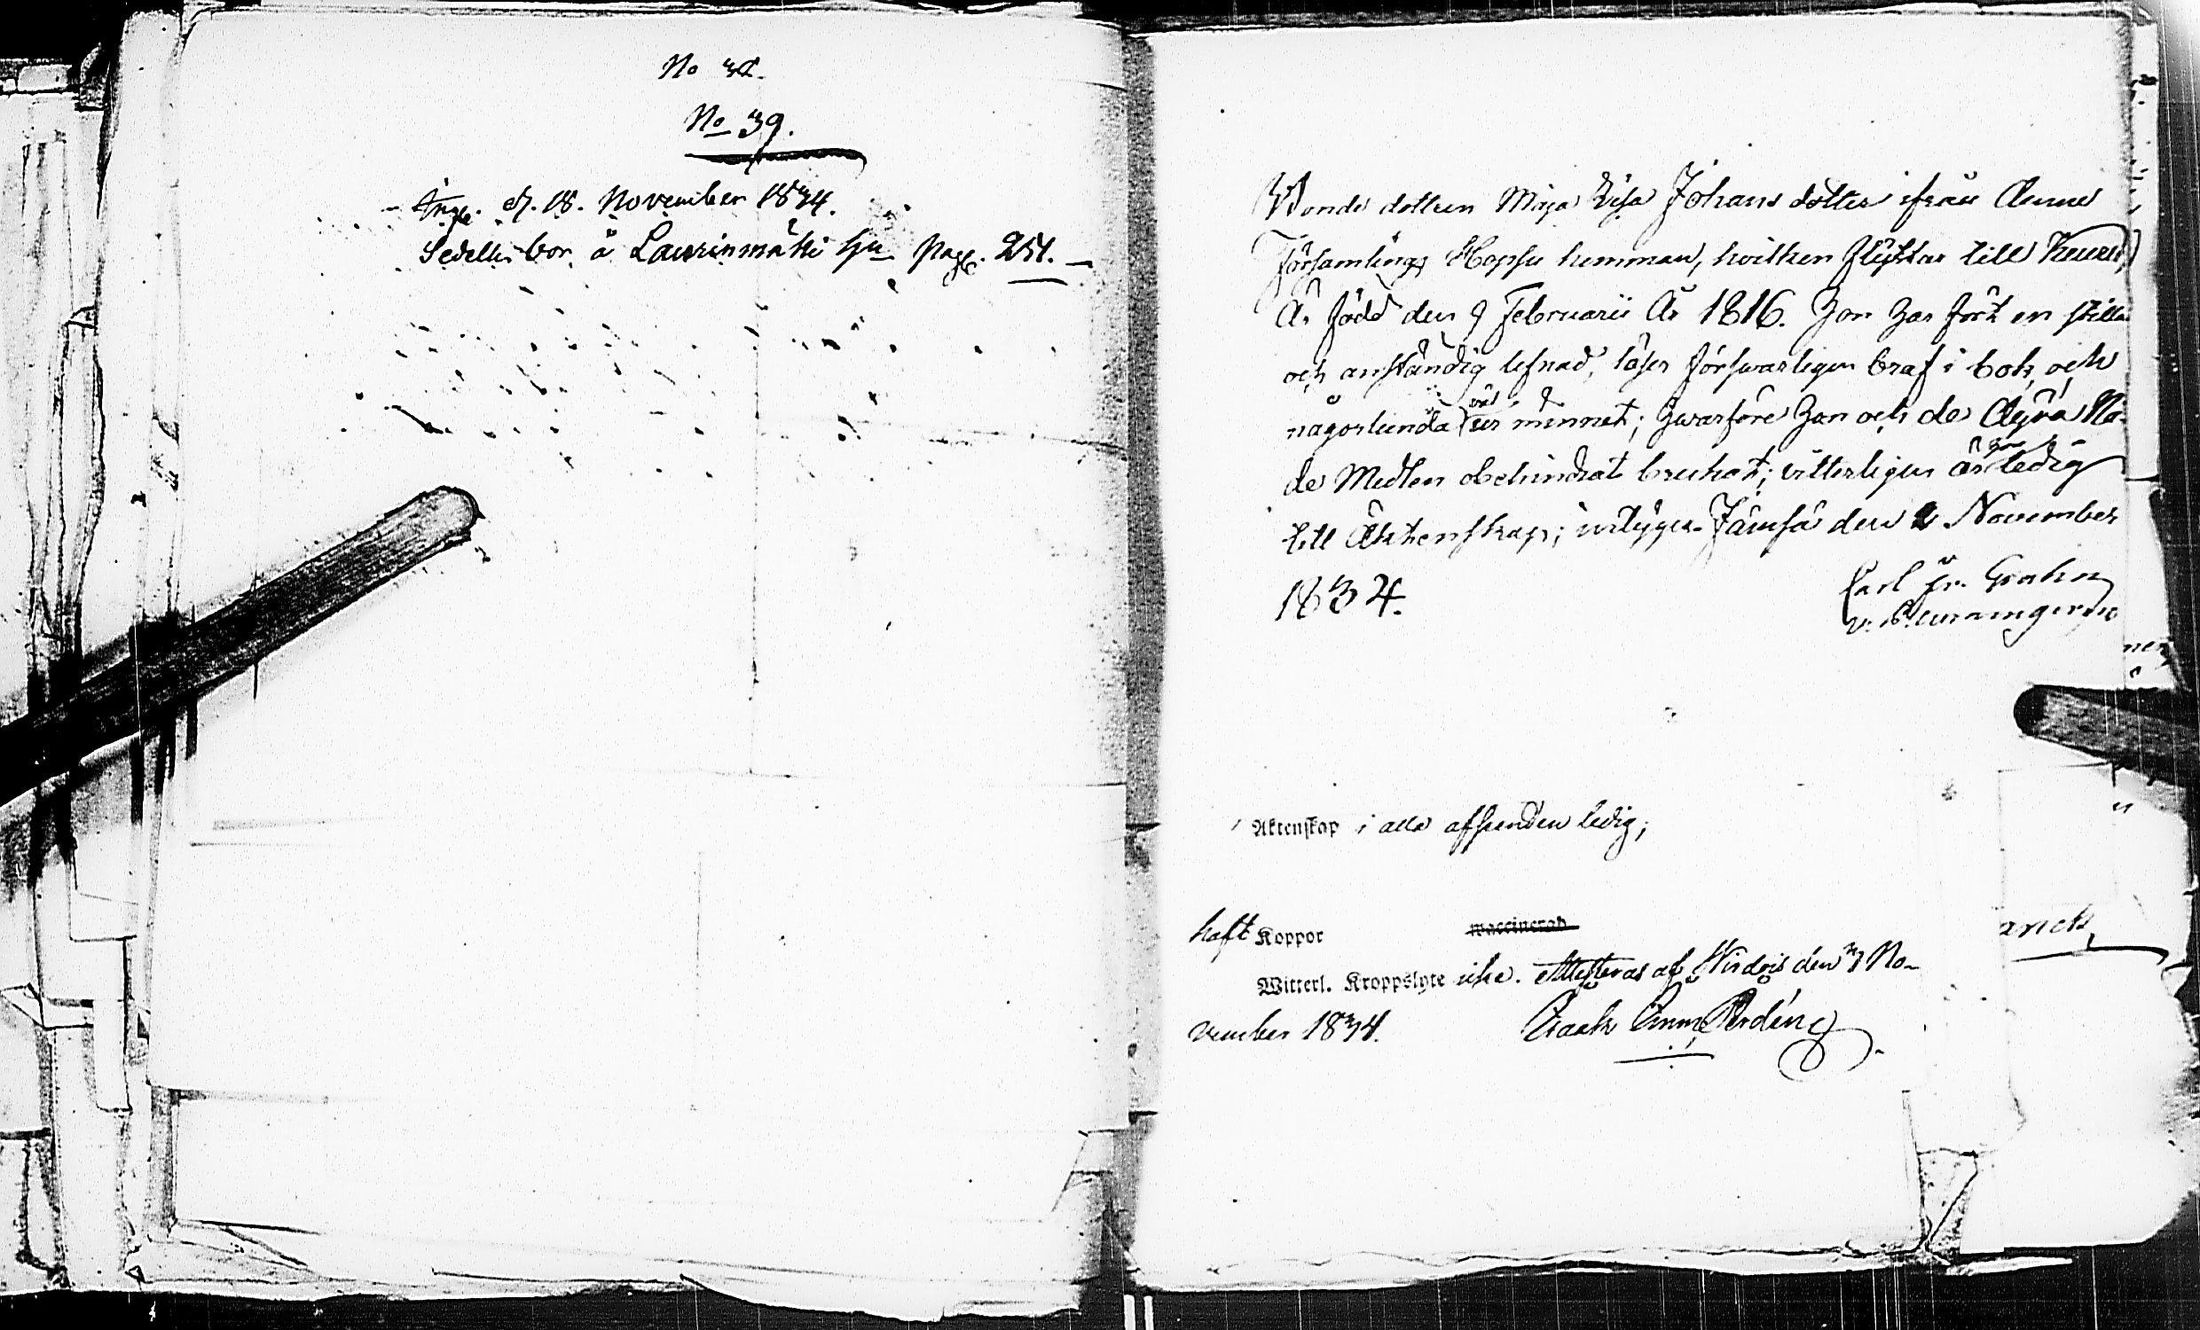 No 32.
No 39.
Ingif. d. 18. November 1834.
Sedelln bor å Laurinmäki hn Pag. 251.
Bonde dottren Maja Lisa Johans dotter ifrån denne
Församlings Hopsu hemman, hvilken flyttar till Keuru,
Är född den 9 Februarii År 1816. Hon har fört en stilla
och anständig lefnad, läser försvarligen braf i bok och
någorlunda ur minnet; hvarföre hon och de Dyra Nå-
de Medlen obehindrat brukat; vitterligen är hon ledig
till Äktenskap; intygar Jämsä den 2 November
1834.
Carl Fr. Grahn
Aktenskap i alla afseenden ledig;
haft Koppor waccinerad
Witterl. Kroppslyte icke. Attesteras af Wirdois den 3 No-
vember 1834. Isaak Emm. Perdéng
anck